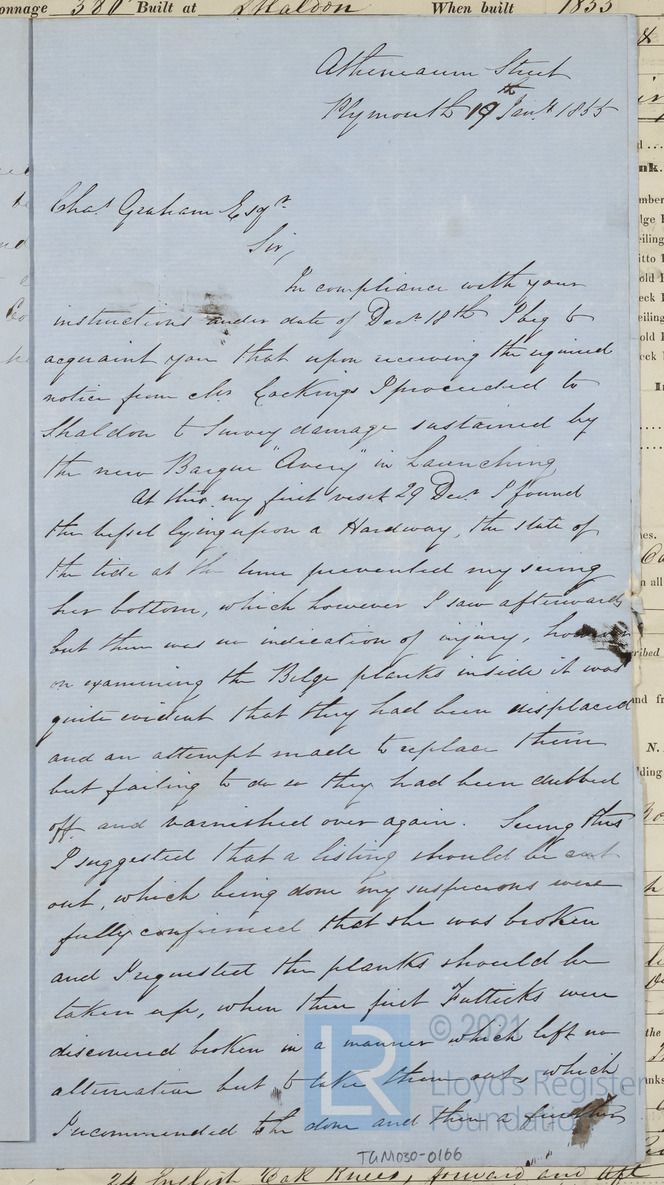 onnage 380 Built at Shaldon When built 1855
Athenaeum Street
Plymouth 19th Jany 1855
Chas Graham Esqr
Sir,
In compliance with your
instructions under date of Decr 18th I beg to
acquaint you that upon receiving the required
notice from Mr Hockings I proceeded to
Shaldon to Survey damage sustained by
the new Barque "Avery" in Launching
At this my first visit 29 Decr I found
the Vessel lying upon a Hardway, the state of
the tide at the time prevented my seeing
her bottom, which however I saw afterwards
but there was no indication of injury, however
on examining the Bilge planks inside it was
quite evident that they had been displaced
and an attempt made to replace them
but failing to do so they had been dubbed
off and varnished over again. Seeing this
I suggested that a listing should be cut
out, which being done my suspicions were
fully confirmed that she was broken
and I requested the planks should be
taken up, when three first Futtocks were
discovered broken in a manner which left no
alternative but to take them out, which
I recommended to be done and then a further
© 2021
Lloyd's Register
Foundation
LR
TGM030-0166
24 English Oak Knees, forward and aft